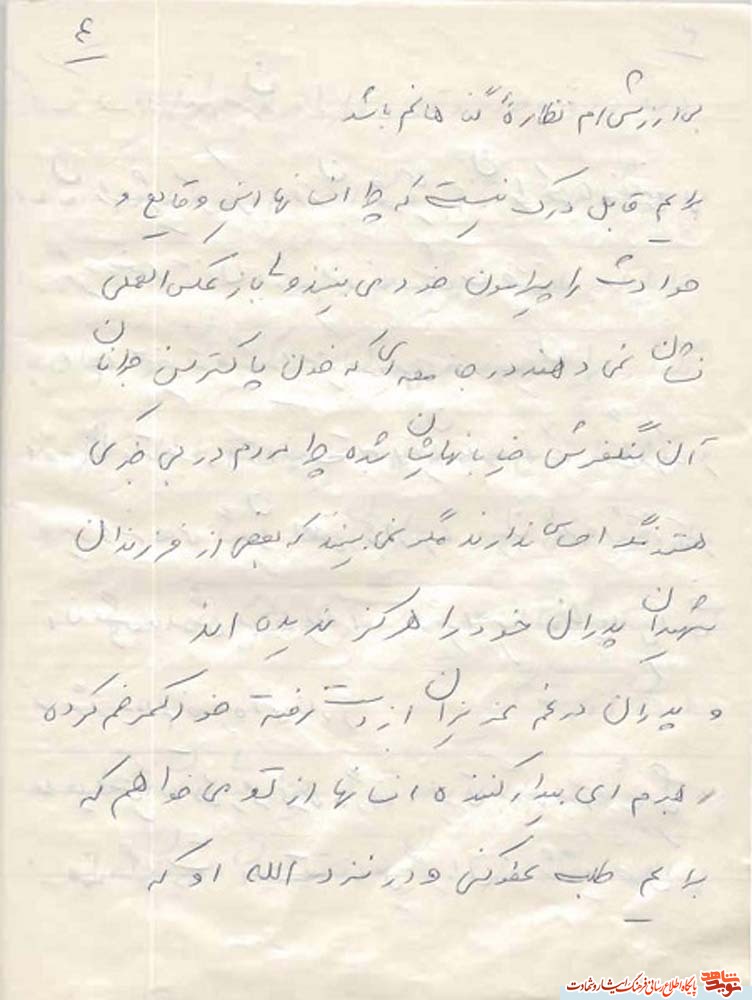 ۴
بی ارزش ام نظارهٔ گنا هانم باشد
برایم قابل درک نیست که چرا انسانها این وقایع و
حوادث را پیرامون خود می بینند ولی باز عکس العملی
نشان نمی دهند در جامعه ای که خون پاکترین جوانان
آن سنگفرش خیابانهایشان شده چرا مردم در بی خبری
هستند مگر احساس ندارند مگر نمی بینند که بعضی از فرزندان
شهیدان پدران خود را هرگز ندیده اند
و پدران در غم عزیزان از دست رفته خود کمر خم کرده
رهبرم ای بیدار کننده انسانها از تو می خواهم که
برایم طلب عفو کنی و در نزد الله او که
پایگاه اطلاع رسانی فرهنگ ایثار و شهادت
نوید شاهد